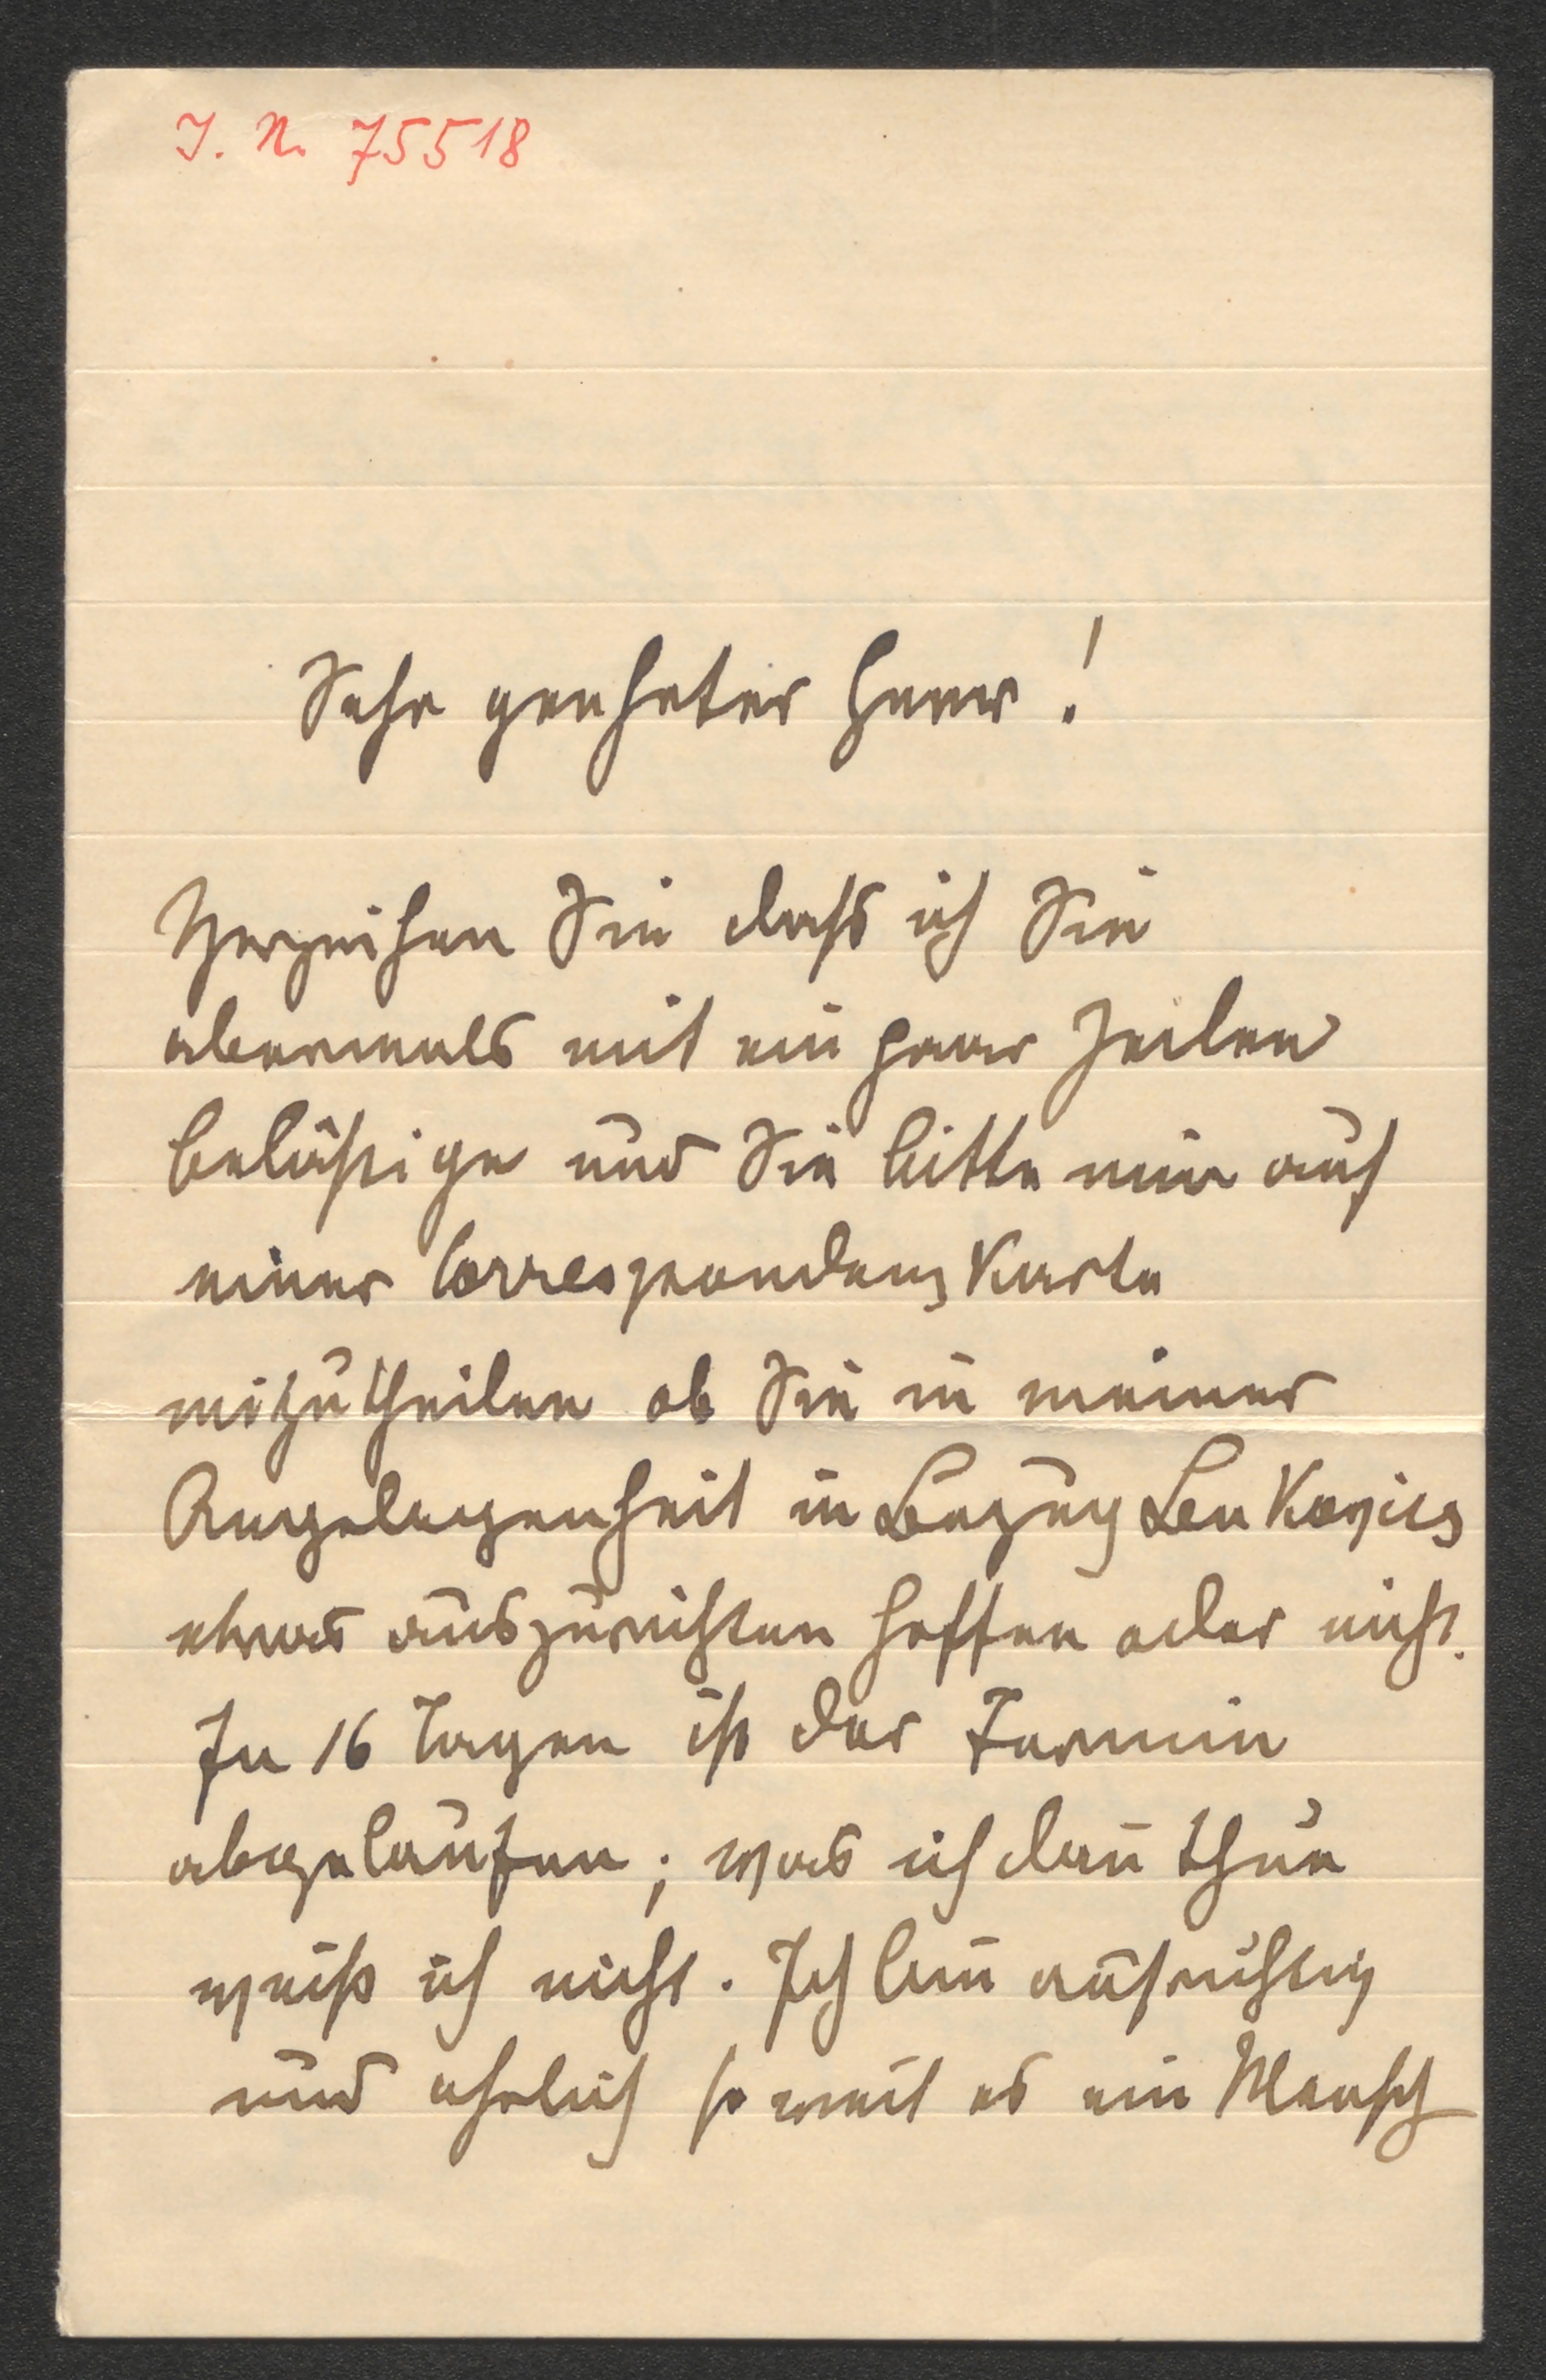 J. N. 75518
Sehr geehrter Herr!
Verzeihen Sie dass ich Sie
abermals mit ein paar Zeilen
belästige und Sie bitte mir auf
einer Correspondenz Karte
mitzutheilen ob Sie in meiner
Angelegenheit in Bezug Leukovics
etwas auszurichten hoffen oder nicht.
In 16 Tagen ist der Termin
abgelaufen; was ich dan̄ thue
weiß ich nicht. Ich bin aufrichtig
und ehrlich so weit es ein Mensch